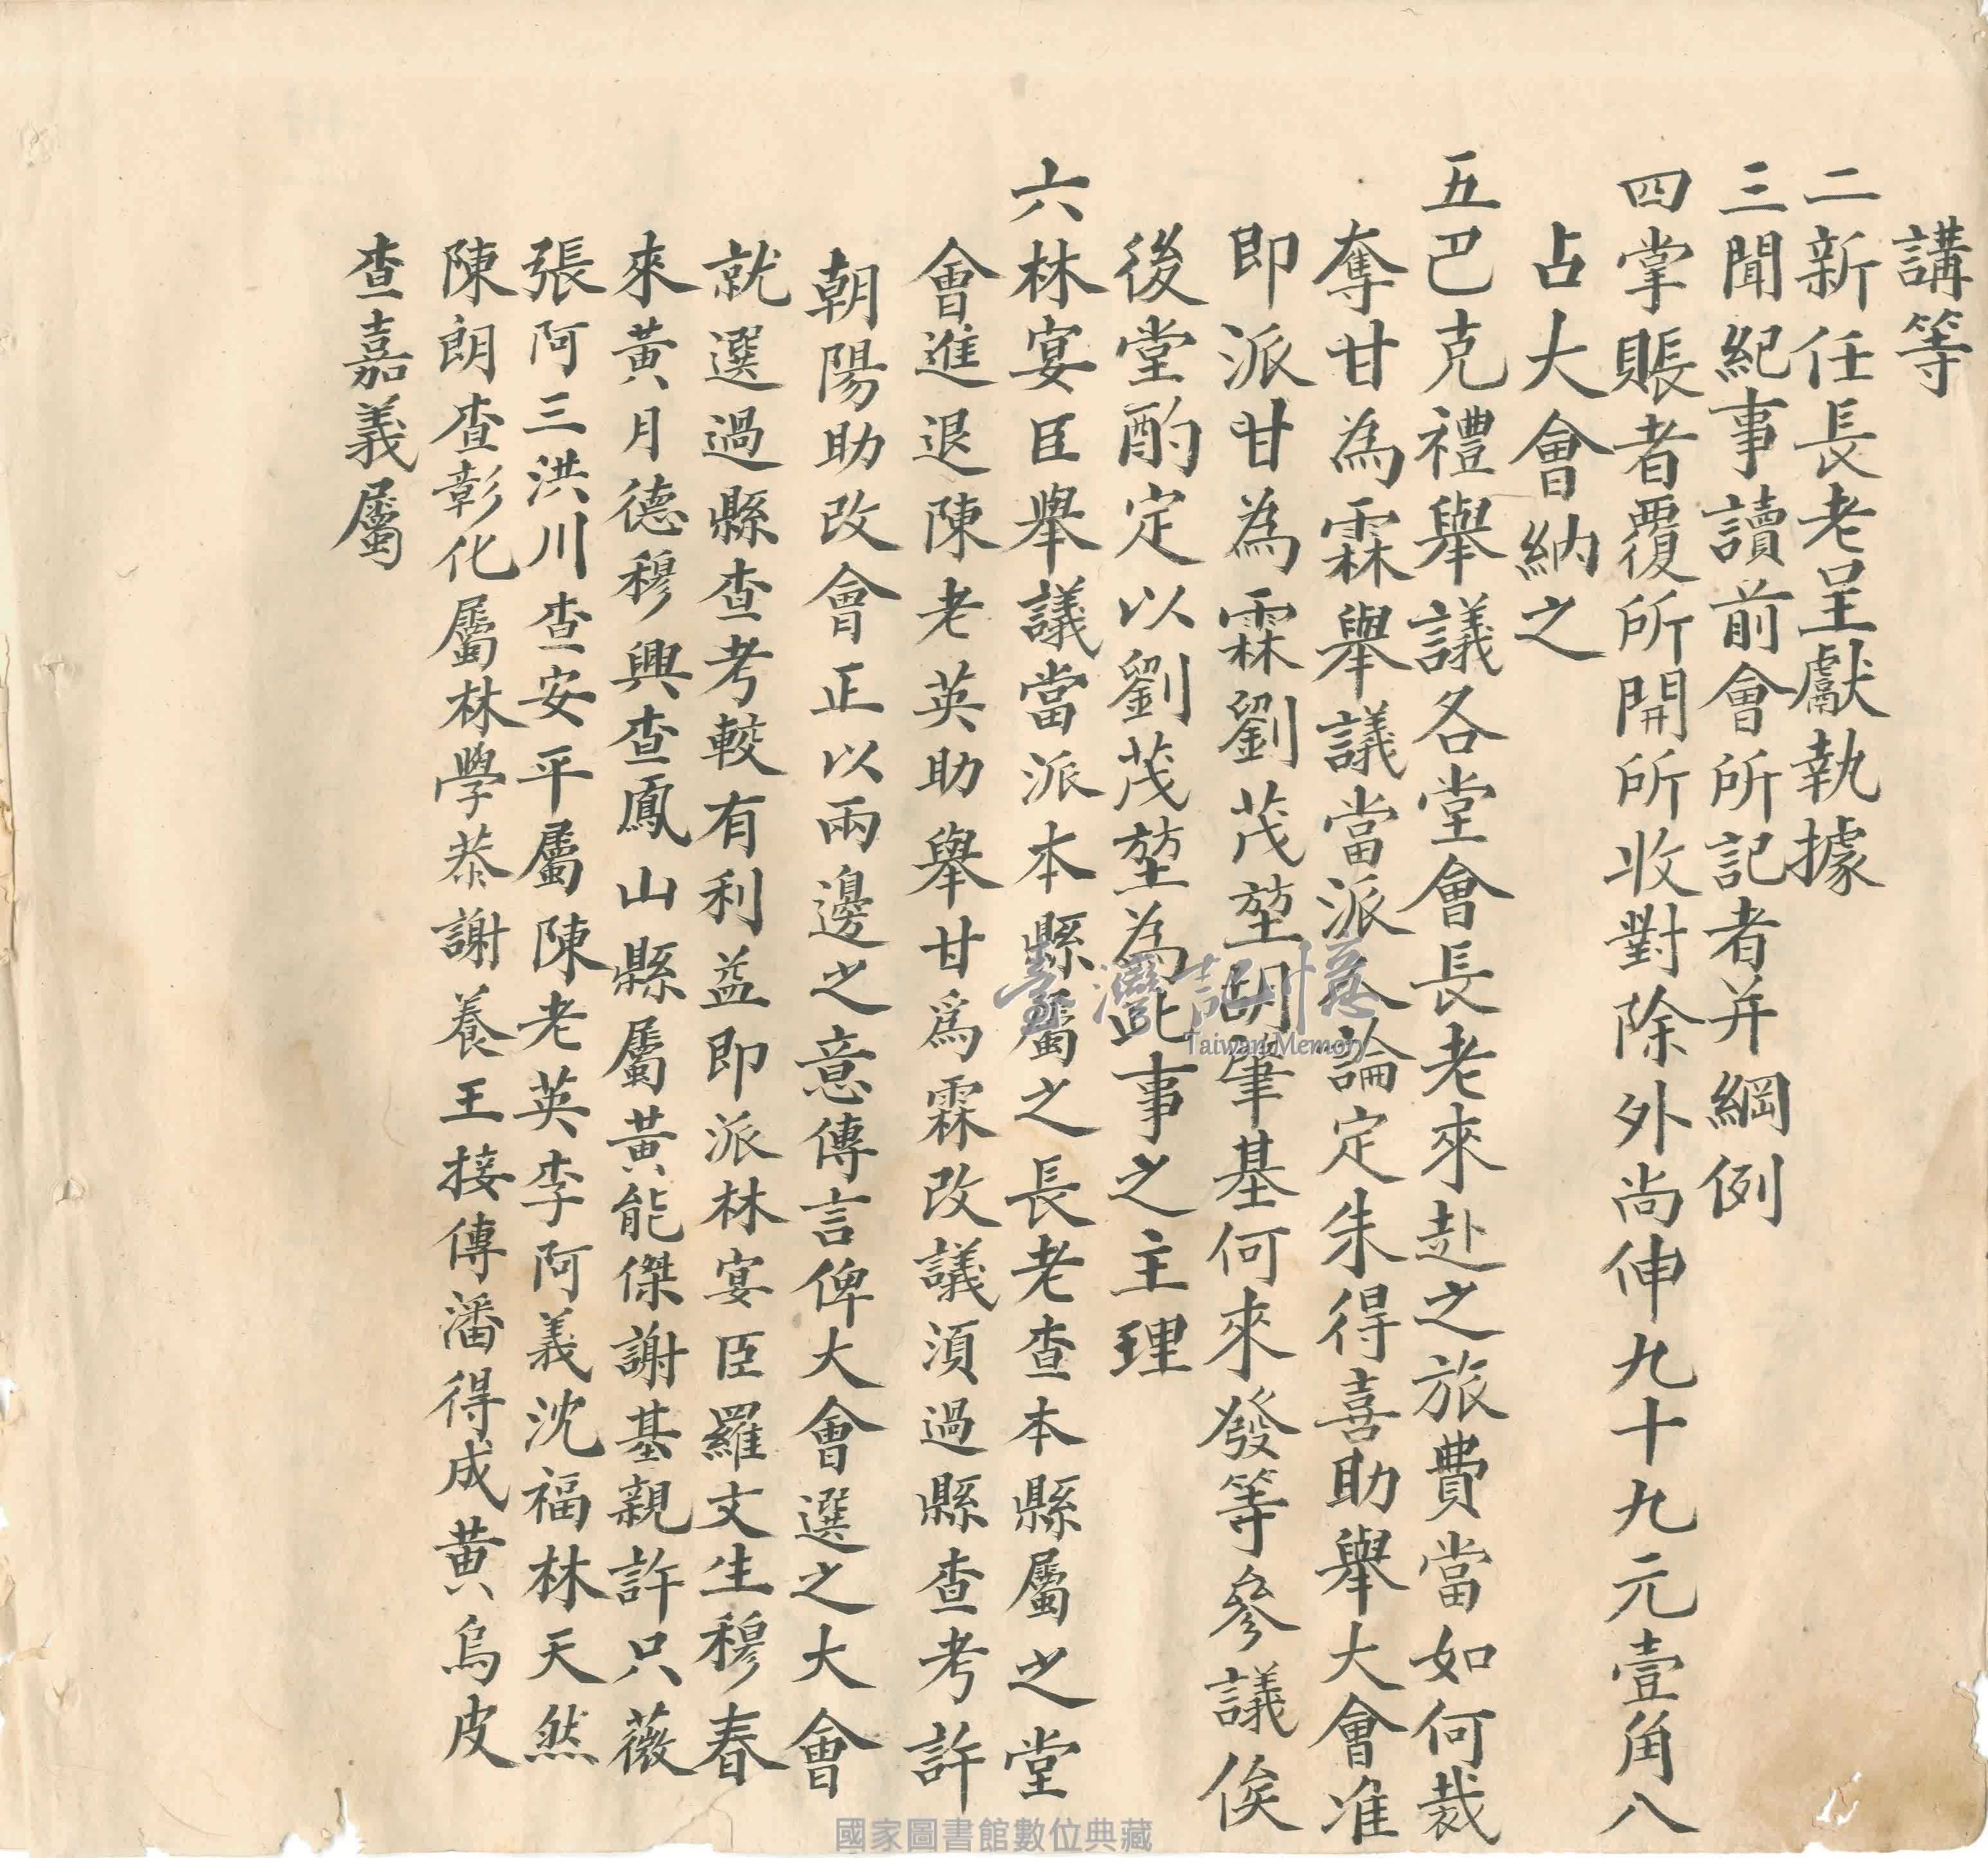 講等
二新任長老呈獻執據
三聞紀事讀前會所記者并綱例
四掌賬者覆所開所收對除外尚伸九十九元壹角八
占大會納之
五巴克禮舉議各堂會長老來赴之旅費當如何裁
奪甘為霖舉議當派人論定朱得喜助舉大會准
即派甘為霖劉茂堃胡肇基何來發等參議俟
後堂酌定以劉茂堃為此事之主理
六林宴臣舉議當派本縣屬之長老查本縣屬之堂
會進退陳老英助舉甘為霖改議須過縣查考許
朝陽助改會正以兩邊之意傳言俾大會選之大會
就選過縣查考較有利益即派林宴臣羅文生穆春
來黃月德穆興查鳳山縣屬黃能傑謝基親許只薇
張阿三洪川查安平屬陳老英李阿義沈福林天然
陳朗查彰化屬林學恭謝養王接傳潘得成黃烏皮
查嘉義屬
臺灣記憶
Taiwan Memory
國家圖書館數位典藏